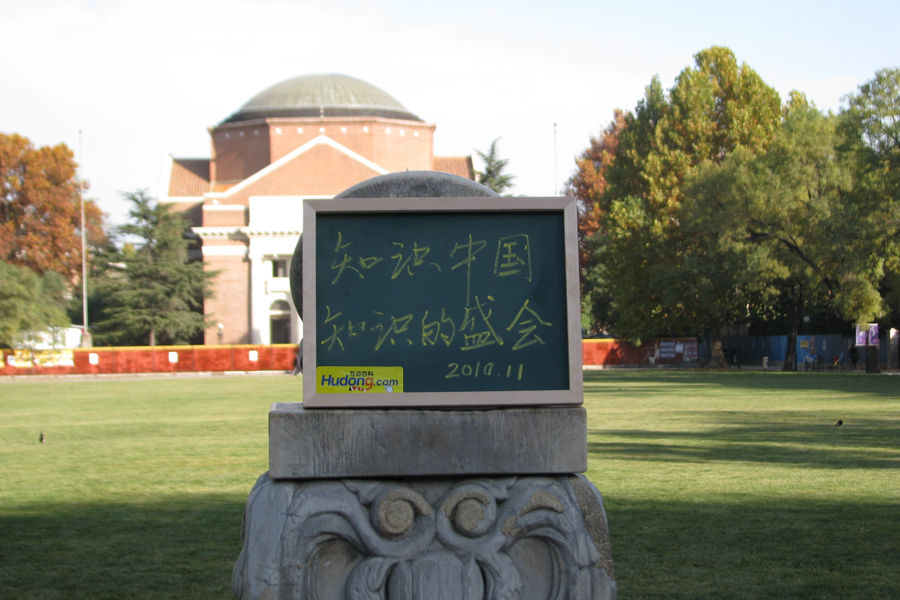 知识中国
知识的盛会
2010.11
互动百科
Hudong.com